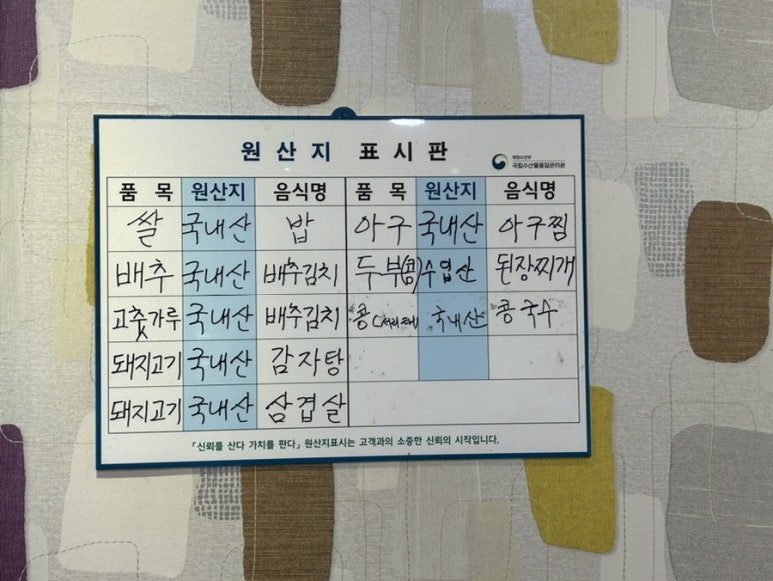 원산지 표시판
해양수산부
국립수산물품질관리원
품목 원산지 음식명 품목 원산지 음식명
쌀 국내산 밥 아구 국내산 아구찜
배추 국내산 배추김치 두부(콩)수입산 된장찌개
고춧가루 국내산 배추김치 콩(서리태) 국내산 콩국수
돼지고기 국내산 감자탕
돼지고기 국내산 삼겹살
「신뢰를 산다 가치를 판다」 원산지표시는 고객과의 소중한 신뢰의 시작입니다.